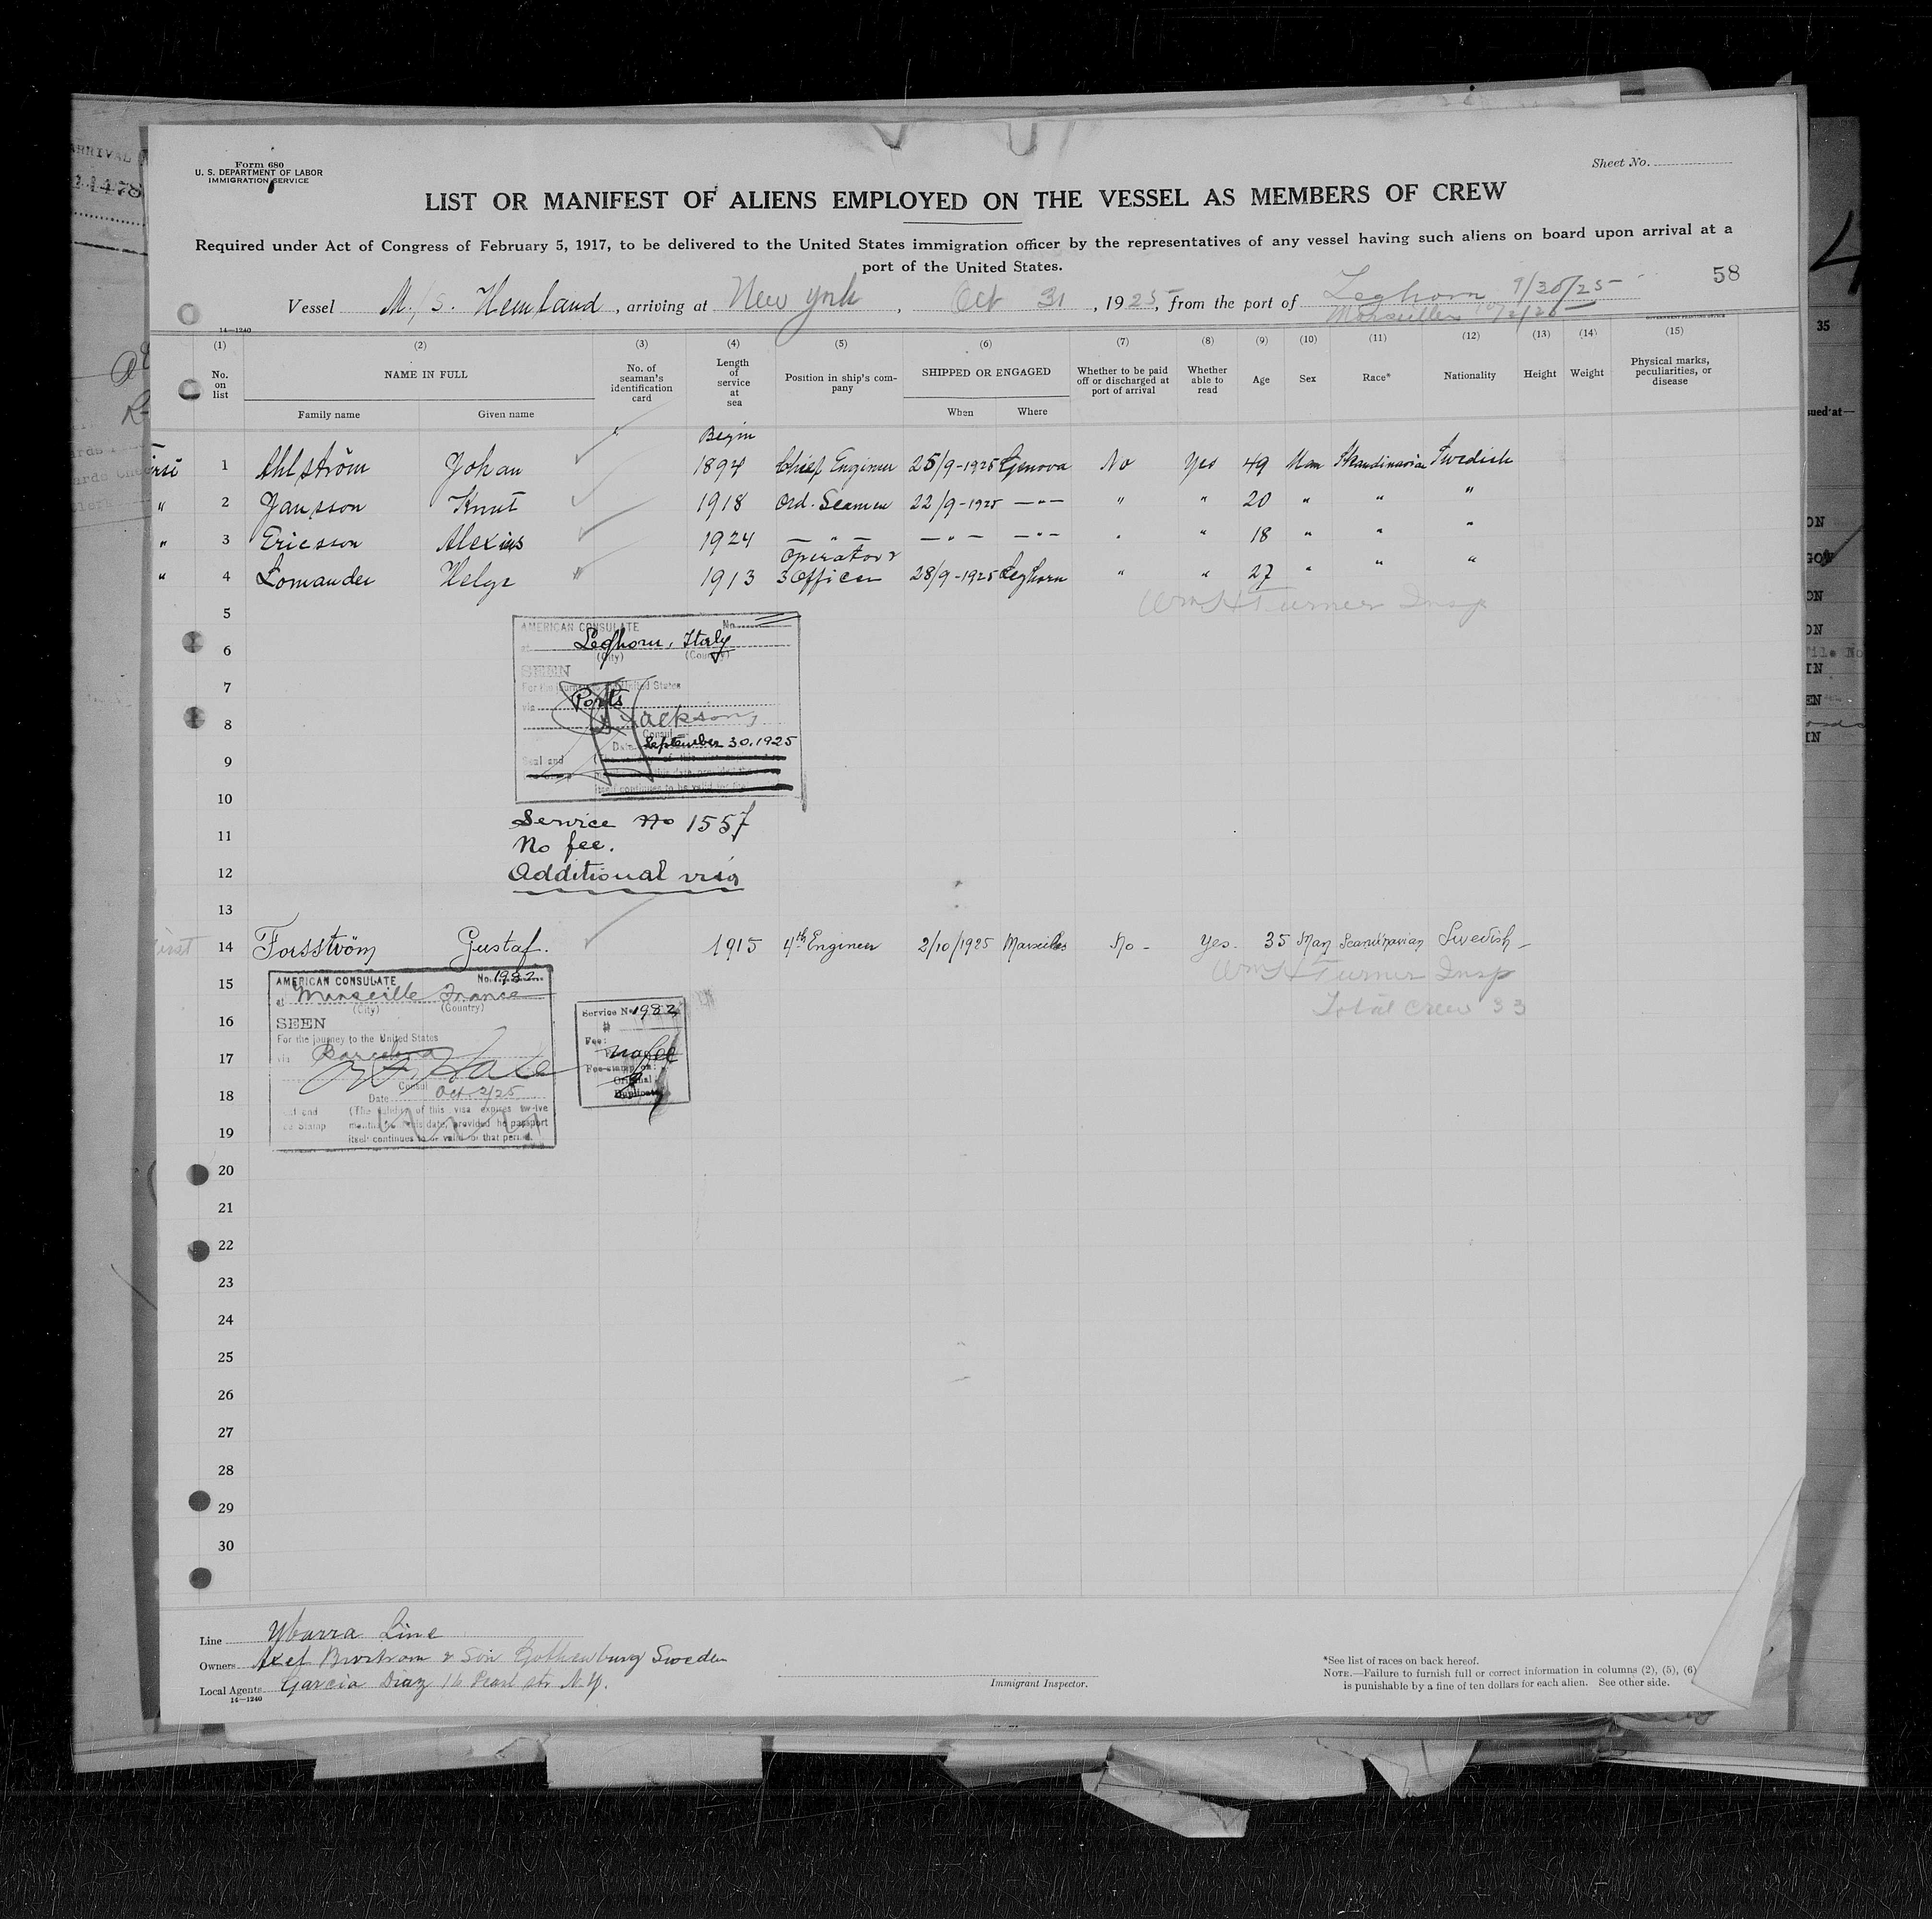 Form 680
U. S. DEPARTMENT OF LABOR
IMMIGRATION SERVICE
Sheet No.
LIST OR MANIFEST OF ALIENS EMPLOYED ON THE VESSEL AS MEMBERS OF CREW
Required under Act of Congress of February 5, 1917, to be delivered to the United States immigration officer by the representatives of any vessel having such aliens on board upon arrival at a
port of the United States.
58
Vessel M/S. Hemland, arriving at New York, Oct 31, 1925, from the port of Leghorn 9/30/25
Marseilles 10/2/25
14—1240
(1) (2) (3) (4) (5) (6) (7) (8) (9) (10) (11) (12) (13) (14) (15)
No. on list
NAME IN FULL
Family name
Given name
No. of seaman's identification card
Length of service at sea
Position in ship's company
SHIPPED OR ENGAGED
When
Where
Whether to be paid off or discharged at port of arrival
Whether able to read
Age
Sex
Race*
Nationality
Height
Weight
Physical marks, peculiarities, or disease
Begin
1 Ahlström Johan 1894 Chief Engineer 25/9-1925 Genova No Yes 49 Man Skandinavian Swedish
" 2 Jansson Knut 1918 Ord. Seaman 22/9-1925 —"— " " 20 " " "
" 3 Ericsson Alexius 1924 —"— —"— —"— " " 18 " " "
Operator &
" 4 Lomander Helge 1913 3 Officer 28/9-1925 Leghorn " " 27 " " "
Wm H Turner Insp
5
6
7
8
9
10
11
12
13
AMERICAN CONSULATE No.
at Leghorn, Italy
(City) (Country)
SEEN
For the journey to the United States
via Ports
Jackson
Consul
Date September 30. 1925
Seal and
Service No 1557
No fee.
Additional visa
First 14 Forsström Gustaf. 1915 4th Engineer 2/10/1925 Marseilles No - Yes - 35 Man Scandinavian Swedish -
Wm H Turner Insp
Total crew 33
15
16
17
18
19
AMERICAN CONSULATE No. 1982
at Marseille France
(City) (Country)
SEEN
For the journey to the United States
via Barcelona
Consul
Date Oct 2/25
(The validity of this visa expires twelve
months from this date, provided the passport
itself continues to be valid for that period.
Service No. 1982
Fee: no fee
Fee stamp on:
Original
Duplicate
20
21
22
23
24
25
26
27
28
29
30
Line Ybarra Line
Owners Axel Broström & Son Gothenburg Sweden
Local Agents Garcia Diaz 16 Pearl str N.Y.
14—1240
Immigrant Inspector.
*See list of races on back hereof.
NOTE.—Failure to furnish full or correct information in columns (2), (5), (6)
is punishable by a fine of ten dollars for each alien. See other side.